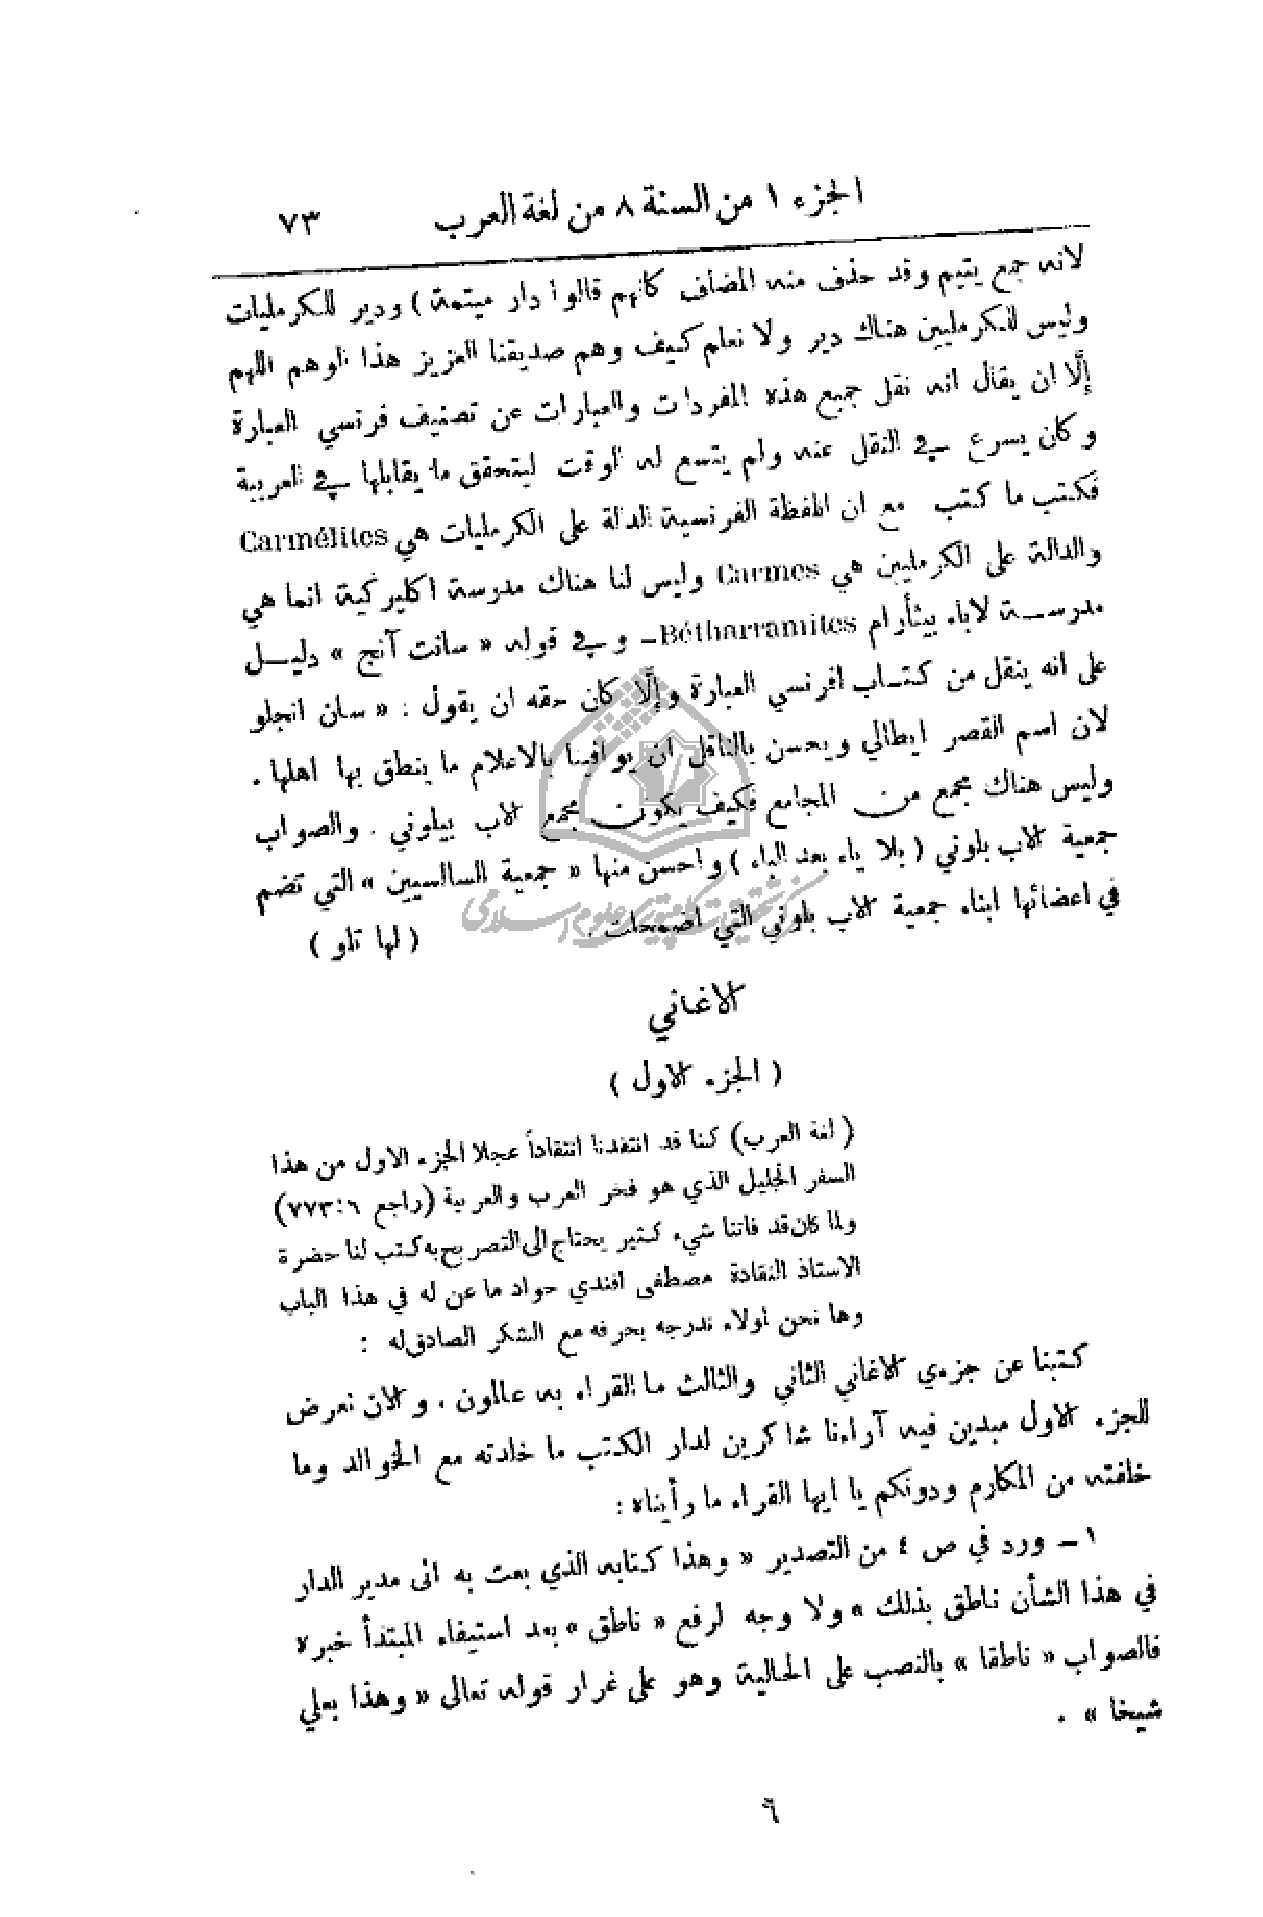 الجزء ١ من السنة ٨ من لغة العرب ٧٣
لانه جمع يتيم وقد حذف منه المضاف كانهم قالوا دار ميتمة ) ودير للكرمليات
وليس للكرمليين هناك دير ولا نعلم كيف وهم صديقنا العزيز هذا الوهم اللهم
إلّا ان يقال انه نقل جميع هذه المفردات والعبارات عن تصنيف فرنسي العبارة
وكان يسرع في النقل عنه ولم يتسع له الوقت ليتحقق ما يقابلها في العربية
فكتب ما كتب مع ان اللفظة الفرنسية الدالة على الكرمليات هي Carmélites
والدالة على الكرمليين هي Carmes وليس لنا هناك مدرسة اكليركية انما هي
مدرســة لاباء بيثأرام Bétharramites ــ وفي قوله « سانت آنج » دليــل
على انه ينقل من كتــاب افرنسي العبارة وإلّا كان حقه ان يقول : « سان انجلو
لان اسم القصر ايطالي ويحسن بالناقل ان يوافينا بالاعلام ما ينطق بها اهلها .
وليس هناك مجمع من المجامع فكيف يكون مجمع الاب بيلوني . والصواب
جمعية الاب بلوني ( بلا ياء بعد الباء ) واحسن منها « جمعية السالسيين » التي تضم
في اعضائها ابناء جمعية الاب بلوني التي اضمحلت . ( لها تلو )
مرکز تحقیقات کامپیوتری علوم اسلامی
الاغاني
( الجزء الاول )
( لغة العرب ) كنا قد انتقدنا انتقاداً عجلا الجزء الاول من هذا
السفر الجليل الذي هو فخر العرب والعربية (راجع ٦:٧٧٣)
ولما كان قد فاتنا شيء كثير يحتاج الى التصريح به كتب لنا حضرة
الاستاذ النقادة مصطفى افندي جواد ما عن له في هذا الباب
وها نحن اولاء ندرجه بحرفه مع الشكر الصادق له :
كتبنا عن جزءي الاغاني الثاني والثالث ما القراء به عالمون . والان نعرض
للجزء الاول مبدين فيه آراءنا شاكرين لدار الكتب ما خلدته مع الخوالد وما
خلفته من المكارم ودونكم يا ايها القراء ما رأيناه :
١ ــ ورد في ص ٤ من التصدير « وهذا كتابه الذي بعث به الى مدير الدار
في هذا الشأن ناطق بذلك » ولا وجه لرفع « ناطق » بعد استيفاء المبتدأ خبره
فالصواب « ناطقا » بالنصب على الحالية وهو على غرار قوله تعالى « وهذا بعلي
شيخا » .
٦